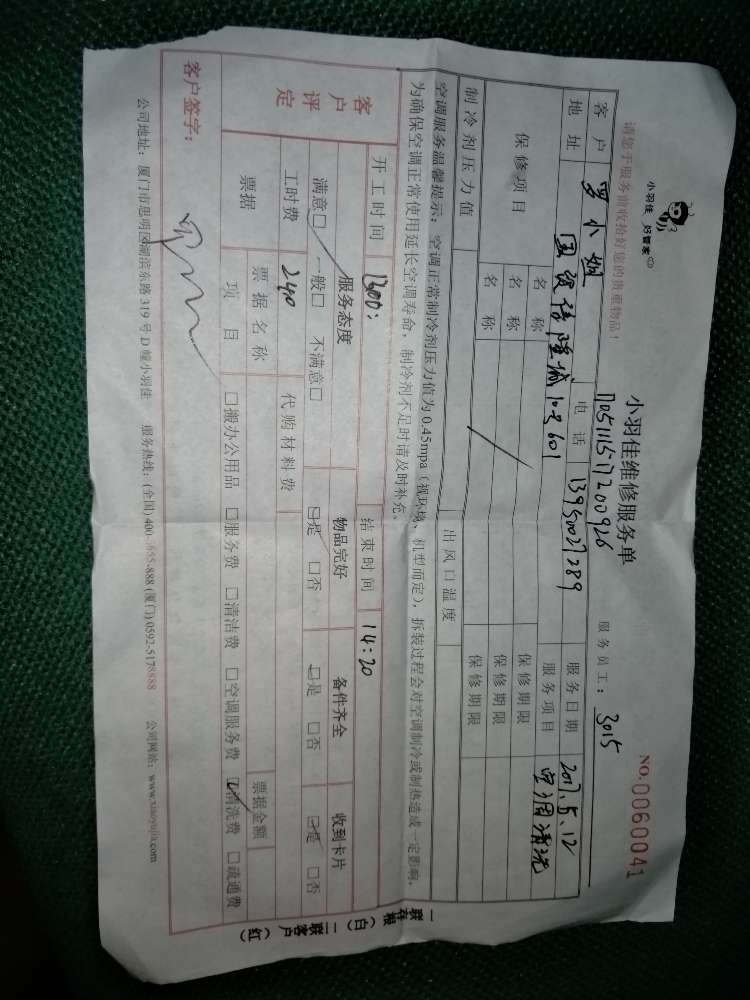 小羽佳 好管家
小羽佳维修服务单
NO.0060041
请您于服务前收拾好您的贵重物品！
服务员工： 3015
客户 罗小姐 电话 13950027289 服务日期 2017.5.12
地址 国贸信隆城10号601 服务项目 空调清洗
保修项目 名称 保修期限
名称 保修期限
名称 保修期限
制冷剂压力值 出风口温度
空调服务温馨提示：空调正常制冷剂压力值为0.45mpa（视环境、机型而定），拆装过程会对空调制冷或制热造成一定影响，
为确保空调正常使用延长空调寿命，制冷剂不足时请及时补充。
开工时间 1300： 结束时间 14:20
客户评定 服务态度 物品完好 备件齐全 收到卡片
满意□ 一般□ 不满意□ □是 □否 □是 □否 □是 □否
工时费 240 代购材料费
票据 票据名称 票据金额
项目 □搬办公用品 □服务费 □清洁费 □空调服务费 □清洗费 □疏通费
客户签字：
公司地址：厦门市思明区湖滨东路319号D幢小羽佳 服务热线：(全国)400-655-888 (厦门)0592-5178888 公司网站：www.xiaoyujia.com
一联存根（白） 二联客户（红）